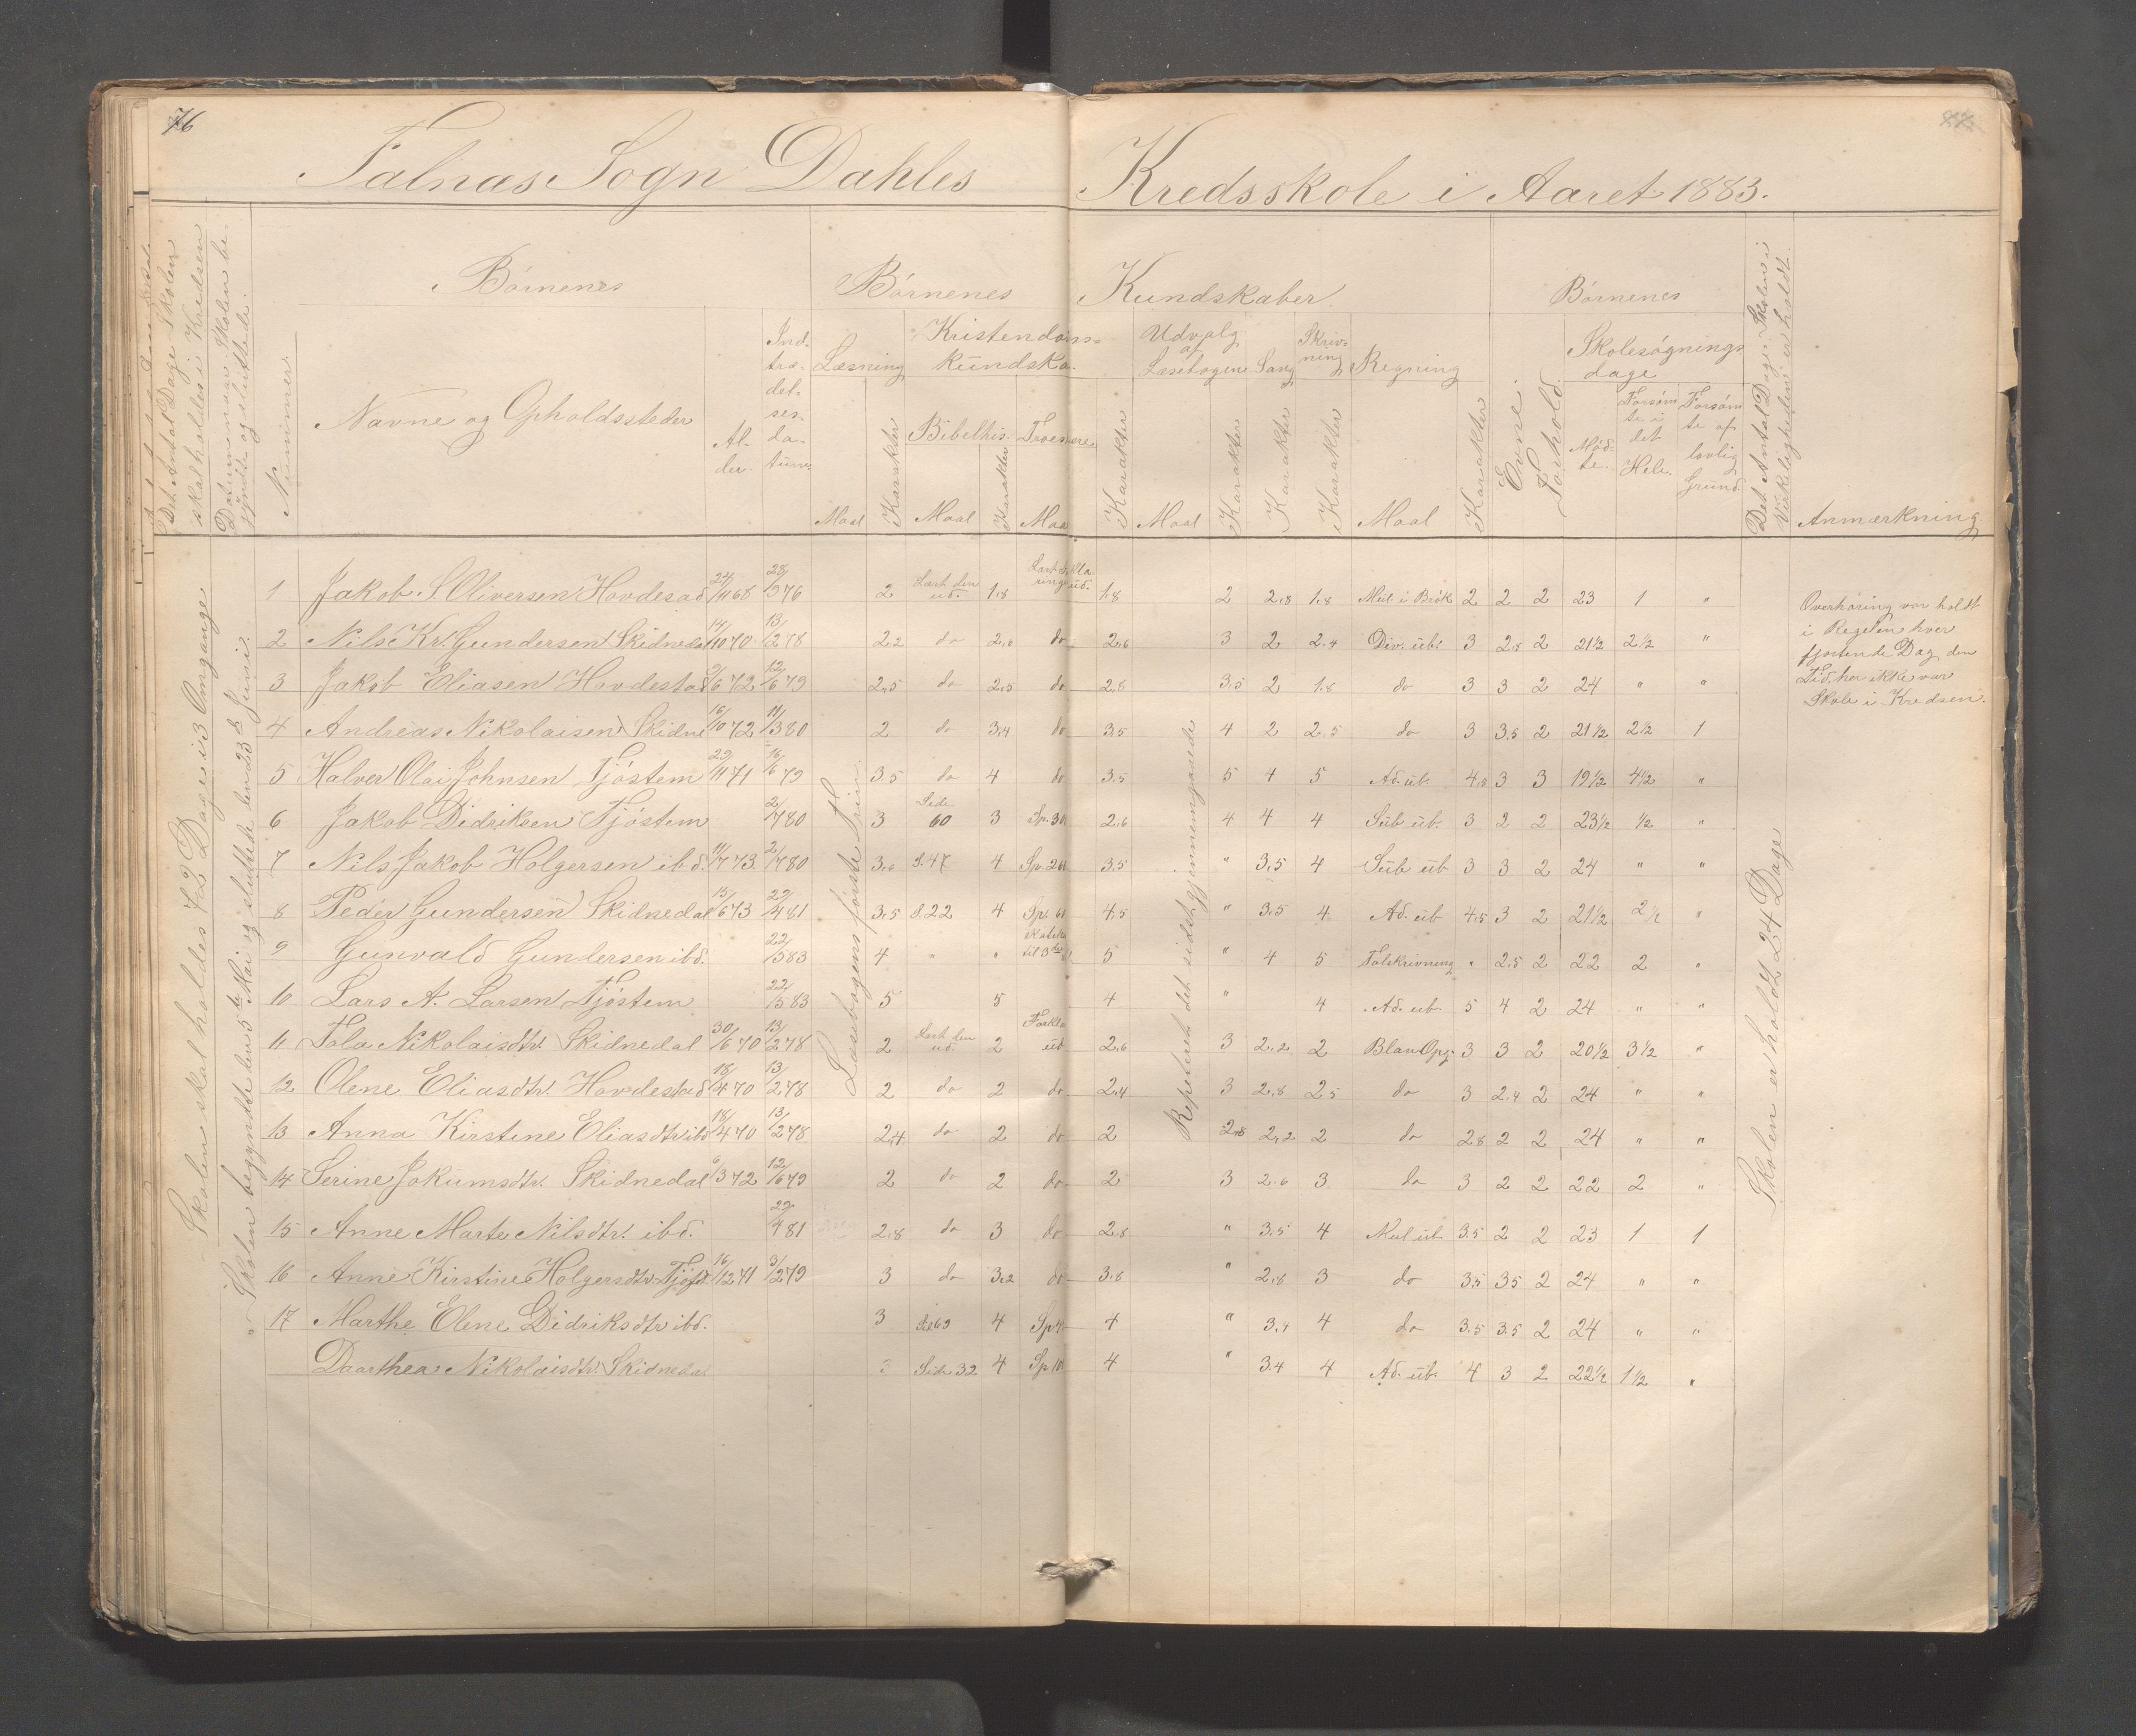 76
Falnæs Sogn Dahles Kredsskole i Aaret 1883.
Det Antal Dage Skolen skal holdes i Kredsen
Datum naar Skolen begyndte og sluttede.
Nummer
Børnenes
Navne og Opholdssteder
Alder.
Indtrædelsesdatum
Børnenes Kundskaber.
Læsning
Maal
Karakter
Kristendomskundskab.
Bibelhis.
Maal
Karakter
Troeslære
Maal
Karakter
Udvalg af Læsebogen
Maal
Karakter
Sang
Karakter
Skrivning
Karakter
Regning
Maal
Karakter
Evne.
Forhold.
Børnenes
Skolesøgningsdage
Mødte.
Forsømte i det Hele.
Forsømte af lovlig Grund
Det Antal Dage Skolen i Virkeligheden er holdt.
Anmærkning
Skolen skal holdes 72 Dage i 3 Omgange
Skolen begyndte den 5te Mai og sluttede den 23de Juni.
Læsebogens første Trin.
Repeteret det sidst gjennemgaaede
Skolen er holdt 24 Dage
Overhøring var holdt
i Regelen hver
fjortende Dag den
Tid, her ikke var
Skole i Kredsen.
1 Jakob S. Oliversen Hovdesad 24/11 68 28/5 76 2 Læst den ud. 1,8 Læst Forklaringen ud. 1,8 2 2,8 1,8 Mul. i Brøk 2 2 2 23 1 "
2 Nils Kr. Gundersen Skidnedal 14/10 70 13/2 78 2,2 do 2,0 do 2,6 3 2 2,4 Div. üb. 3 2,8 2 21½ 2½ "
3 Jakob Eliasen Hovdestad 9/6 72 12/6 79 2,5 do 2,5 do 2,8 3,5 2 1,8 do 3 3 2 24 " "
4 Andreas Nikolaisen Skidne 16/10 72 11/3 80 2 do 3,4 do 3,5 4 2 2,5 do 3 3,5 2 21½ 2½ 1
5 Halver Olai Johnsen Tjøstem 29/11 71 16/6 79 3,5 do 4 do 3,5 5 4 5 Ad. üb. 4,8 3 3 19½ 4½ "
6 Jakob Didriksen Tjøstem 2/7 80 3 Side 60 3 Sp. 30 2,6 4 4 4 Süb üb. 3 2 2 23½ ½ "
7 Nils Jakob Holgersen ibd. 11/7 73 2/7 80 3,6 S. 47 4 Sp. 261 3,5 " 3,5 4 Süb üb 3 3 2 24 " "
8 Peder Gundersen Skidnedal 15/6 73 22/4 81 3,5 S. 22 4 Sp. 61 4,5 " 3,5 4 Ad. üb 4,5 3 2 21½ 2½ "
9 Gunvald Gundersen ibd. 22/5 83 4 " " til 3die 5 " 4 5 Talskrivning " 2,5 2 22 2 "
10 Lars A. Larsen Tjøstem 22/5 83 5 5 4 " 4 Ad. üb. 5 4 2 24 " "
11 Tola Nikolaisdtr. Skidnedal 30/6 70 13/2 78 2 Læst den ud 2 Forkla ud 2,6 3 2,2 2 Blan Opg. 3 3 2 20½ 3½ "
12 Olene Eliasdtr. Hovdestad 18/4 70 13/2 78 2 do 2 do 2,4 3 2,8 2,5 do 3 2,4 2 24 " "
13 Anna Kirstine Eliasdtr ibd 18/4 70 13/2 78 2,4 do 2 do 2 2,8 2,2 2 do 2,8 2 2 24 " "
14 Serine Jokumsdtr. Skidnedal 6/3 72 12/6 79 2 do 2 do 2 3 2,6 3 do 3 2 2 22 2 "
15 Anne Marte Nilsdtr. ibd. 22/4 81 2,8 do 3 do 2,8 " 3,5 4 Mul üb 3,5 2 2 23 1 1
16 Anne Kirstine Holgersdtr. Tjøst 16/12 71 3/2 79 3 do 3,2 do 3,8 " 2,8 3 do 3,5 3,5 2 24 " "
17 Marthe Olene Didriksdtr ibd. 3 Sid 63 4 Sp 4 " 3,4 4 do 3,5 3,5 2 24 " "
Daarthea Nikolaisdtr. Skidnedal 3 Side 32 4 Sp 4 " 3,4 4 Ad. üb. 4 3 2 22½ 1½ "